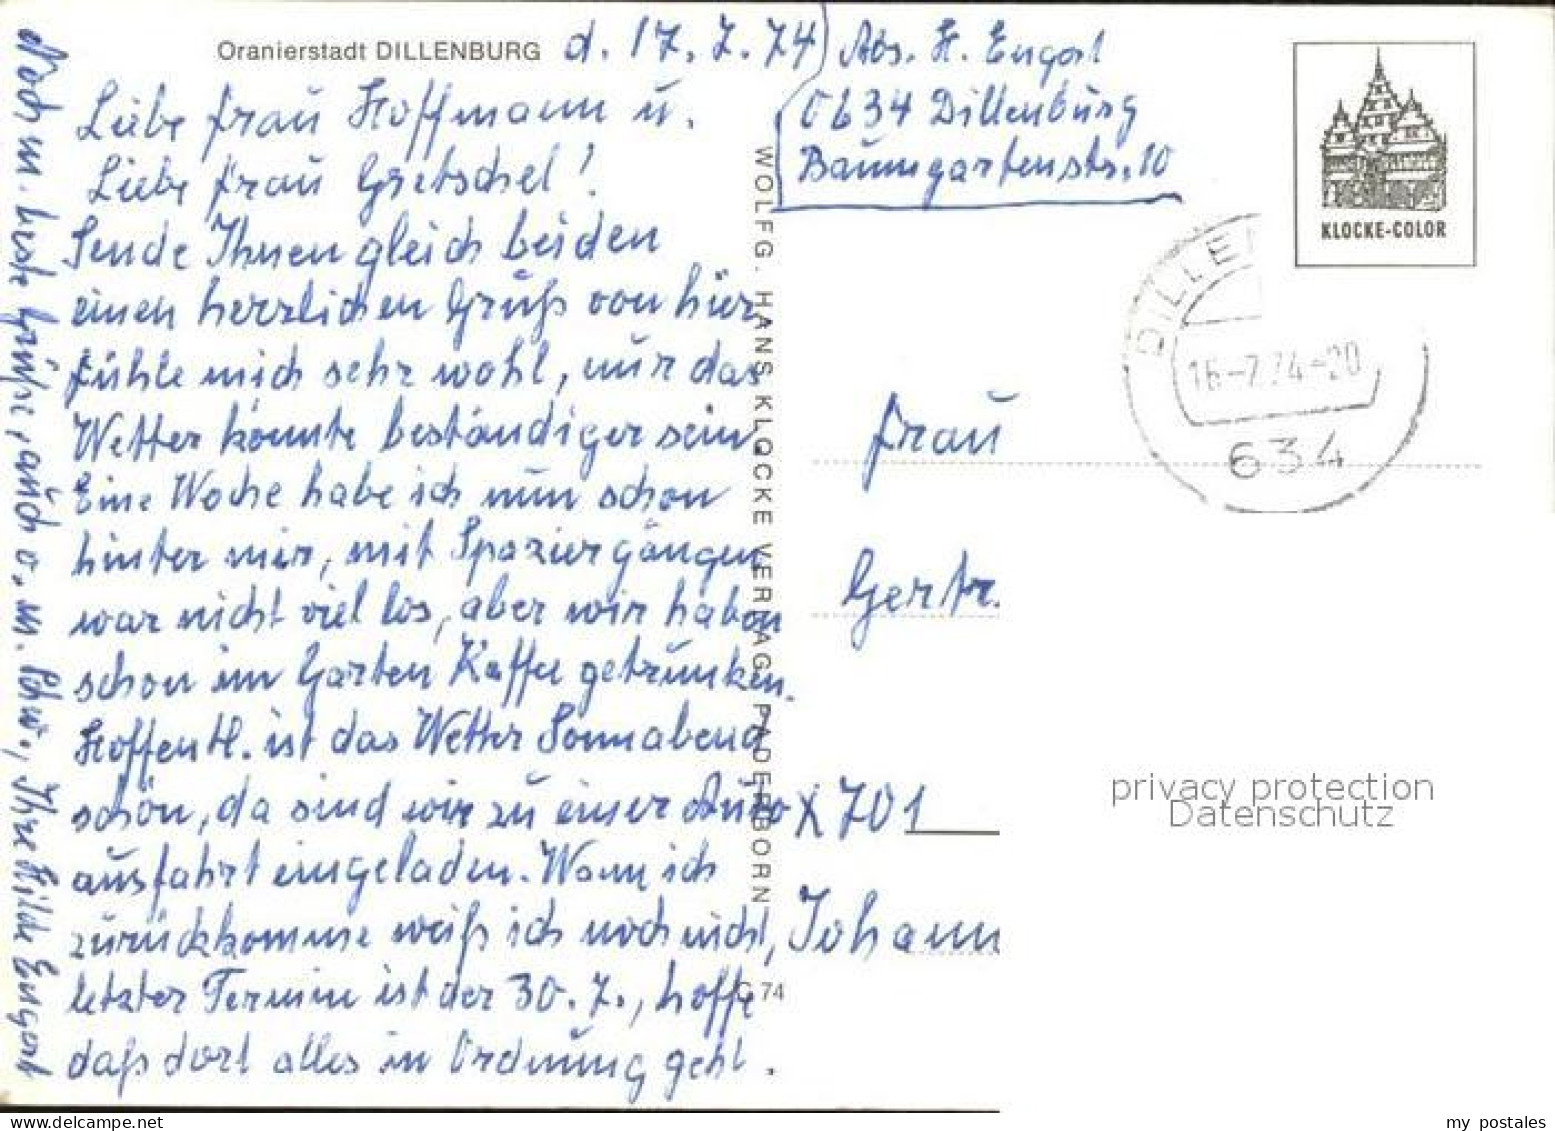 Oranierstadt DILLENBURG d. 17.7.74
Abs. H. Engart
0634 Dillenburg
Baumgartenstr. 10
Liebe Frau Hoffmann u.
Liebe Frau Gretschel!
Sende Ihnen gleich beiden
einen herzlichen Gruß von hier
fühle mich sehr wohl, nur das
Wetter könnte beständiger sein.
Eine Woche habe ich nun schon
hinter mir, mit Spaziergängen
war nicht viel los, aber wir haben
schon im Garten Kaffee getrunken.
Hoffentl. ist das Wetter Sonnabend
schön, da sind wir zu einer Auto
ausfahrt eingeladen. Wann ich
zurückkomme weiß ich noch nicht,
letzter Termin ist der 30.7., hoffe
daß dort alles in Ordnung geht.
Noch m. beste Grüße, auch v. m. Schw., Ihre Hilde Engart
WOLFG. HANS KLOCKE VERLAG, PADERBORN
C 74
KLOCKE-COLOR
DILLEN
16-7.74-20
634
Frau
Gertr.
X 701
Johann
privacy protection
Datenschutz
my postales